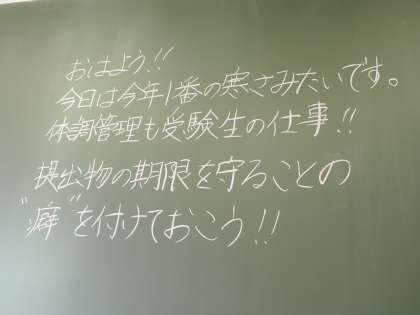 おはよう!!
今日は今年1番の寒さみたいです。
体調管理も受験生の仕事!!
提出物の期限を守ることの
"癖"を付けておこう!!